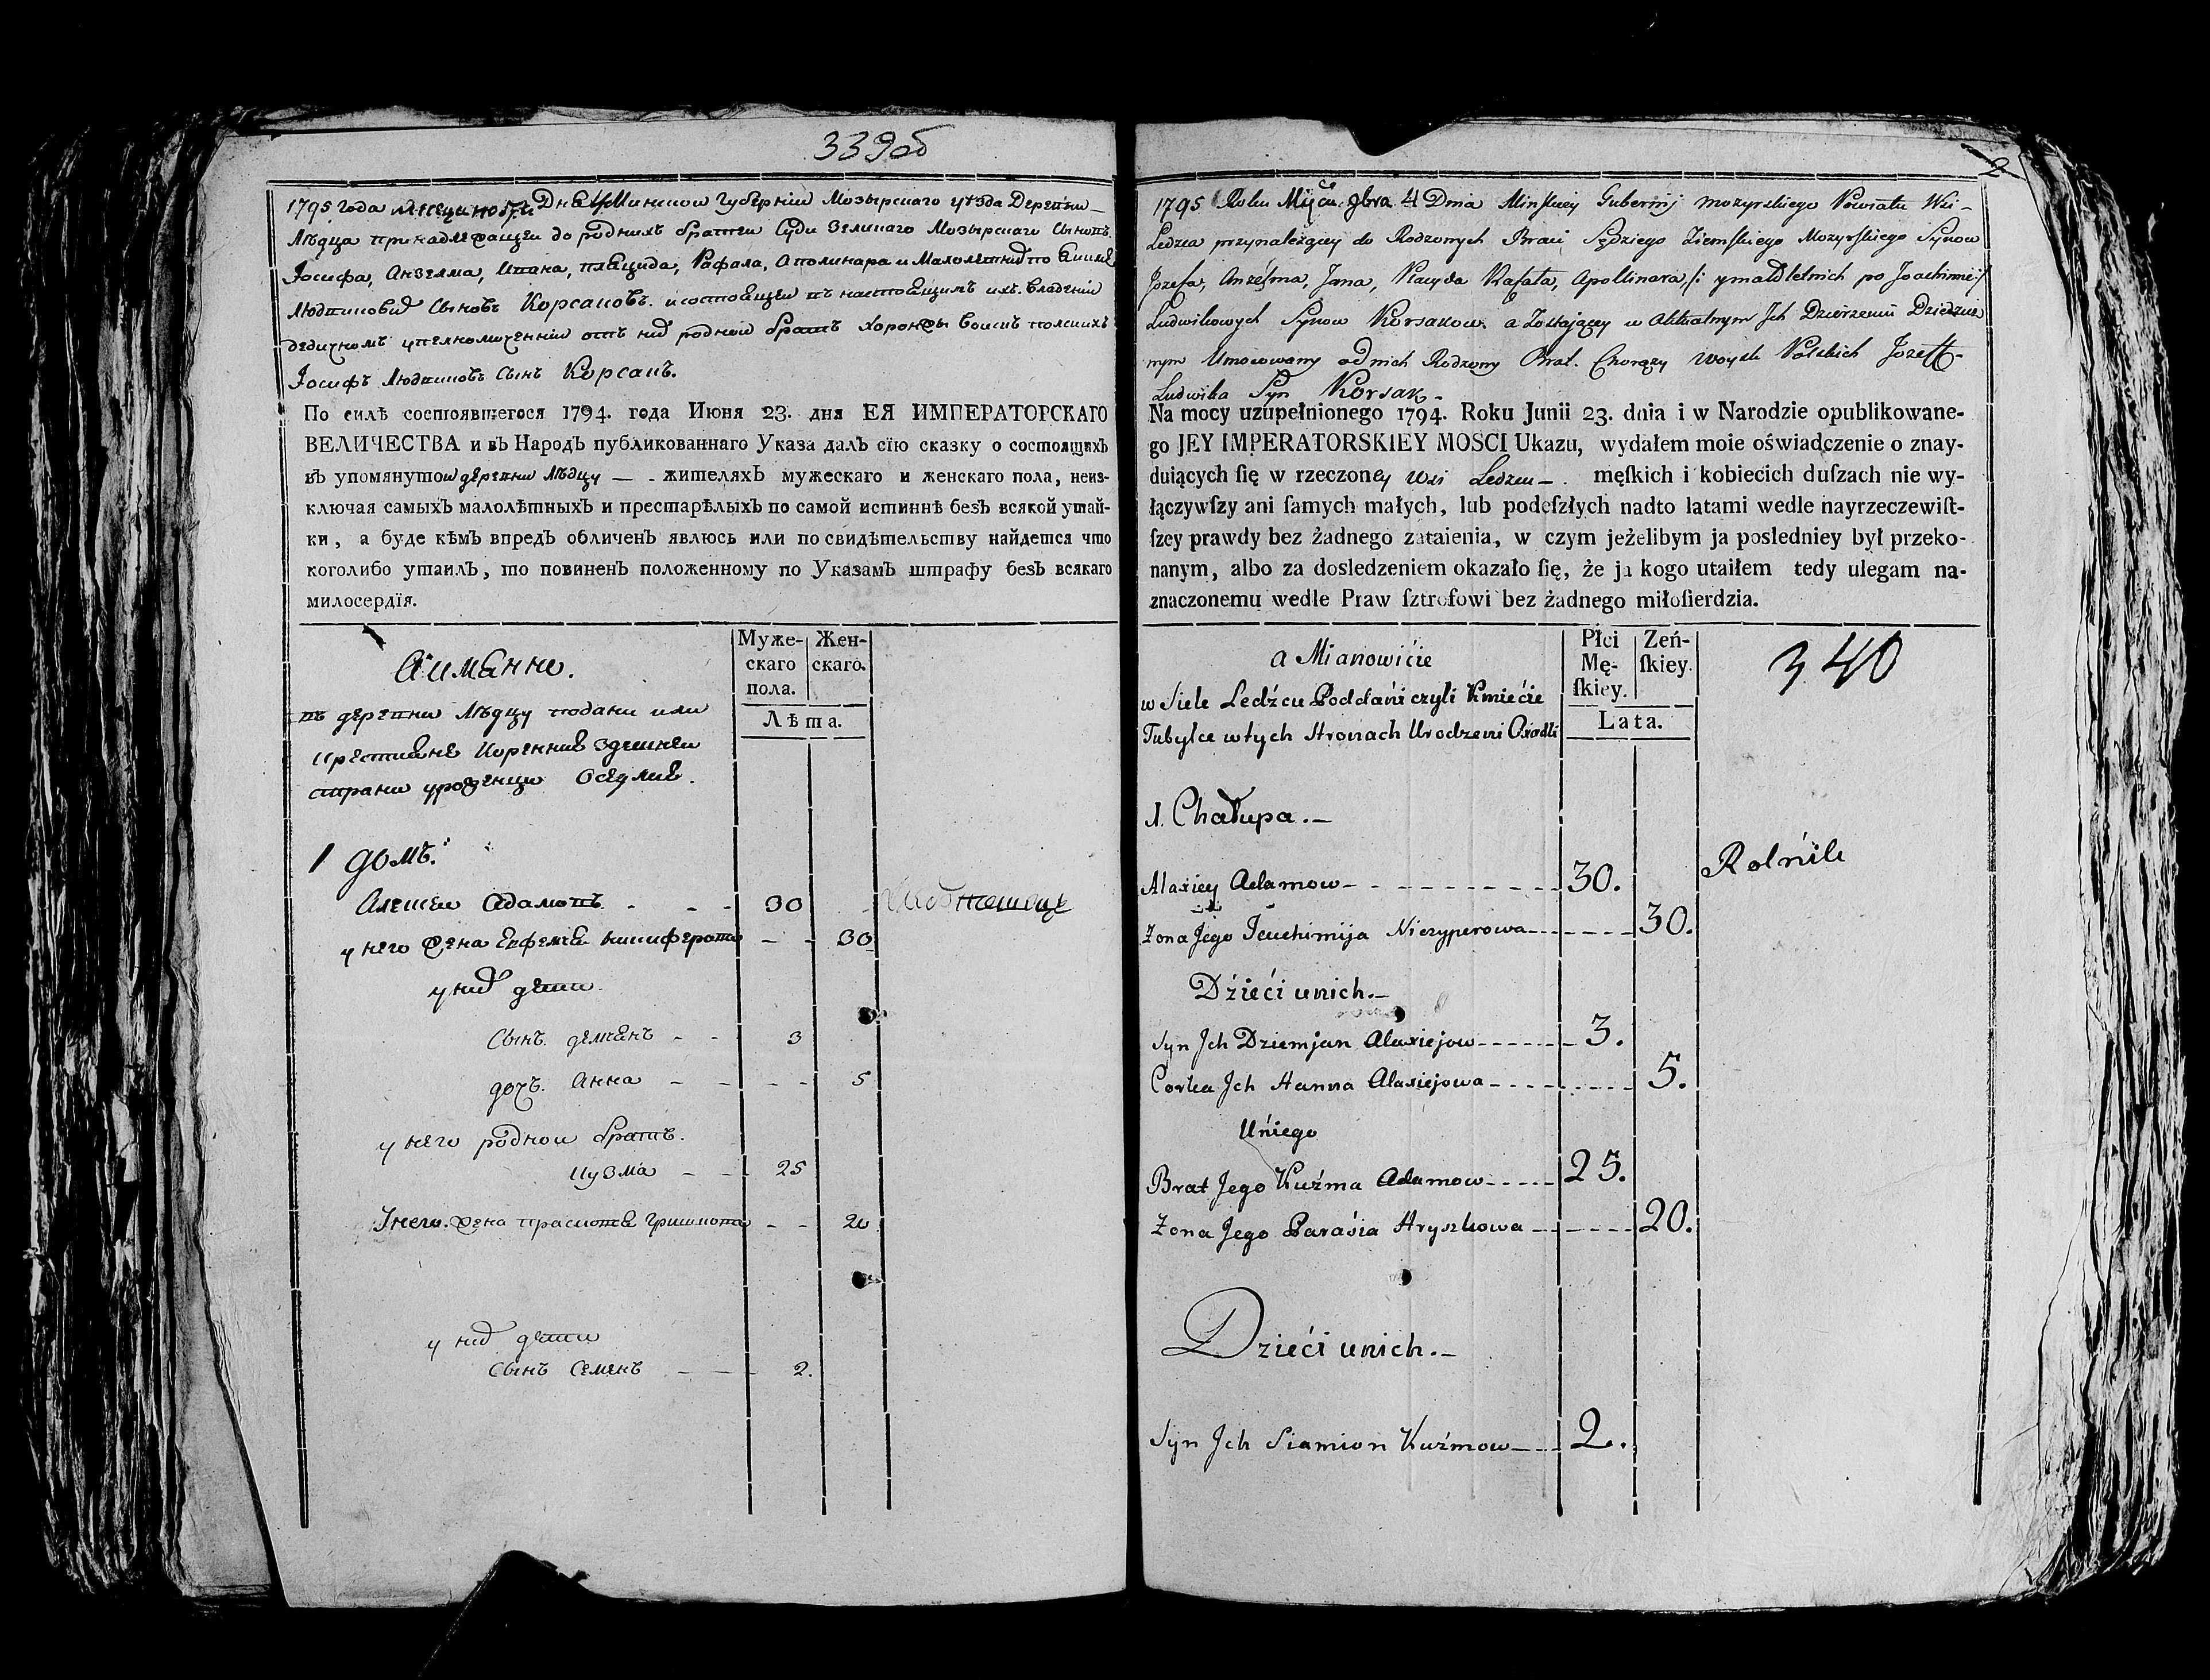 339об
1795 года Дня 4 Минской Губернии Мозырскаго уѣзда Деревни
Лѣдца принадлежащей до родныхъ братей Суди Земскаго Мозырскаго Сыновъ
Іосифа, Анзелма, Ивана, Плацида, Рафала, Аполинара и Малолетнихъ по
Людвиковихъ Сыновъ Корсаковъ. и состоящей въ настоящимъ ихъ владении
дедичномъ упелномоченний отъ них родной братъ Хоронжы Воискъ полскихъ
Іосифъ Людвиковъ Сынъ Корсакъ.
По силѣ состоявшегося 1794. года Июня 23. дня ЕЯ ИМПЕРАТОРСКАГО
ВЕЛИЧЕСТВА и въ Народъ публикованнаго Указа далъ сїю сказку о состоящихъ
въ упомянутой деревни Лѣдцу — - жителяхъ мужескаго и женскаго пола, неиз-
ключая самыхъ малолѣтныхъ и престарѣлыхъ по самой истиннѣ безъ всякой утай-
ки, а буде кѣмъ впредъ обличенъ явлюсь или по свидѣтельству найдется что
коголибо утаилъ, то повиненъ положенному по Указамъ штрафу безъ всякаго
милосердїя.
А именно.
Муже-
скаго
пола.
Жен-
скаго.
Лѣта.
въ деревни Лѣдцу подани или
крестияне коренние здешней
страни уроженци Оседлие.
1 домъ.
Алексей Адамовъ - - - 30
у него жена Евфемия Никиферова - - 30
у них дети.
Сынъ демянъ - - 3
дочъ. Анна - - - - 5
у него родной братъ.
Кузма - - 25
У него. жена Прасковя Гришкова - - 20
у них дети
Сынъ Семенъ - - - 2.
2
1795 Roku Mcą 9bra 4 Dnia Minskiey Gubernij Mozyrskiego Powiatu Wsi –
Ledzca przynależącey do Rodzonych Braci Sędziego Ziemskiego Mozyrskiego Synow
Jozefa, Anzelma, Jana, Placyda Rafała, Apollinara, /: y małoletnich po Joachimie :/
Ludwikowych Synow Korsakow. a Zostającey w Aktualnym Jch Dzierżeniu Dziedzicz
nym Umocowany od nich Rodzony Brat. Chorąży Woysk Polskich Jozeff –
Ludwika Syn Korsak –
Na mocy uzupełnionego 1794. Roku Junii 23. dnia i w Narodzie opublikowane-
go JEY IMPERATORSKIEY MOSCI Ukazu, wydałem moie oświadczenie o znay-
duiących ſię w rzeczoney Wsi Ledzcu — . męſkich i kobiecich duſzach nie wy-
łączywſzy ani ſamych małych, lub podeſzłych nadto latami wedle nayrzeczewiſt-
ſzey prawdy bez żadnego zataienia, w czym jeżelibym ja posledniey był przeko-
nanym, albo za dosledzeniem okazało ſię, że ja kogo utaiłem tedy ulegam na-
znaczonemu wedle Praw ſztrofowi bez żadnego miłoſierdzia.
a Mianowićie
Płci
Mę-
ſkiey.
Zeń-
ſkiey.
Lata.
340
w Siele Ledźcu Poddańi czyli Kmiećie
Tubylce w tych Stronach Urodzeni Osiadli
1. Chałupa. –
Alaxiey Adamow - - - - - - - - - 30. Rolńik
Zona Jego Jeuchimija Niczyperowa - - - - - - 30.
Dźiećі unich. –
Syn Jch Dziemjan Alaxiejow - - - - - - - 3.
Corka Jch Hanna Alaxiejowa - - - - - - - - - 5.
Uńiego
Brat Jego Kuźma Adamow - - - - - 25.
Zona Jego Paraśia Hryszkowa - - - - - - - 20.
Dziećі unich. –
Syn Jch Siamion Kuźmow - - - 2.